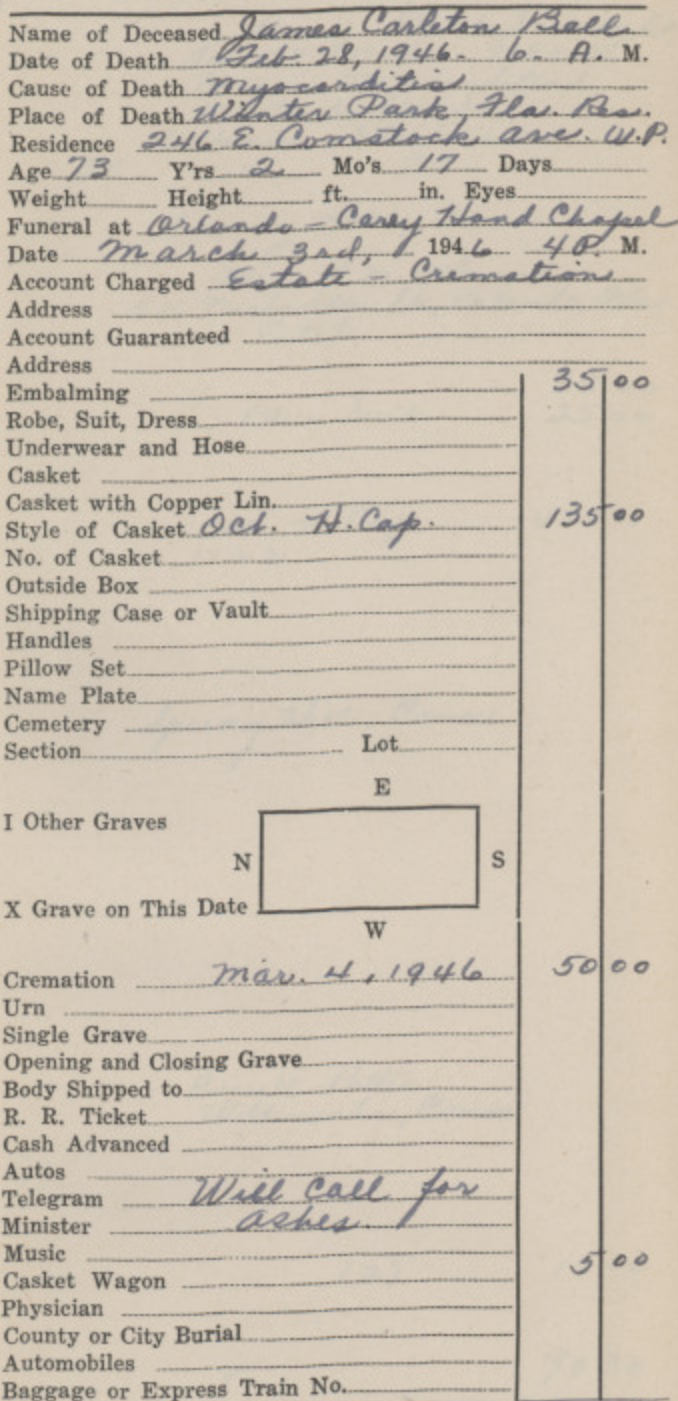 Name of Deceased James Carleton Bell
Date of Death Feb 28, 1946 - 6 - A. M.
Cause of Death Myocarditis
Place of Death Winter Park, Fla. Res.
Residence 246 E. Comstock Ave. W.P.
Age 73 Y'rs 2 Mo's 17 Days
Weight Height ft. in. Eyes
Funeral at Orlando - Carey Hand Chapel
Date March 3rd, 1946 4 P. M.
Account Charged Estate - Cremation
Address
Account Guaranteed
Address
Embalming 35 00
Robe, Suit, Dress
Underwear and Hose
Casket
Casket with Copper Lin.
Style of Casket Oct. H. Cap. 135 00
No. of Casket
Outside Box
Shipping Case or Vault
Handles
Pillow Set
Name Plate
Cemetery
Section Lot
E
I Other Graves
N S
X Grave on This Date
W
Cremation Mar. 4, 1946 50 00
Urn
Single Grave
Opening and Closing Grave
Body Shipped to
R. R. Ticket
Cash Advanced
Autos
Telegram Will call for
Minister ashes.
Music 5 00
Casket Wagon
Physician
County or City Burial
Automobiles
Baggage or Express Train No.